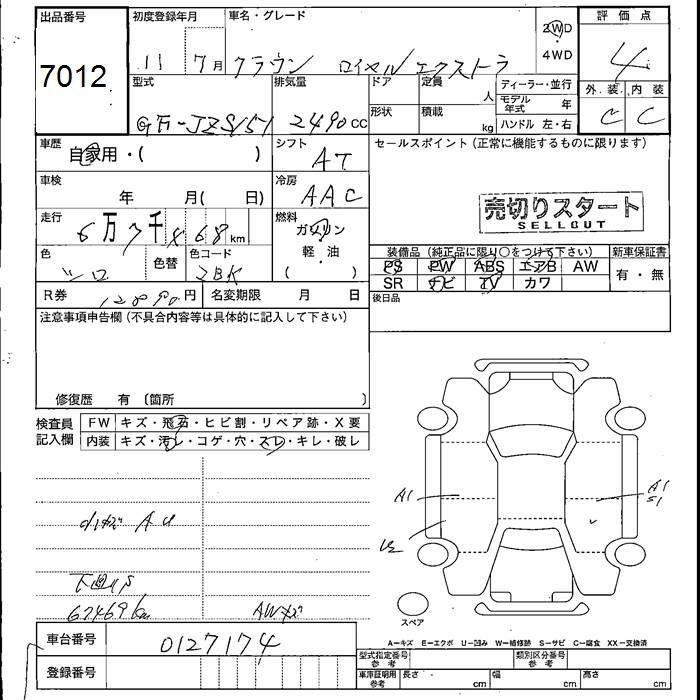 出品番号 初度登録年月 車名・グレード 評価点
7012 11 7月 クラウン ロイヤルエクストラ 2WD 4WD 4
型式 排気量 ドア 定員 人 ディーラー・並行 外装 内装
GF-JZS151 2490cc 形状 積載 kg モデル年式 年 C C
ハンドル 左・右
車歴 自家用・( ) シフト AT セールスポイント(正常に機能するものに限ります)
車検 年 月( 日) 冷房 AAC
売切りスタート
SELLOUT
走行 6万7千 468km 燃料 ガソリン 軽・油 ( )
色 シロ 色替 色コード 2BK
装備品(純正品に限り○をつけて下さい) 新車保証書
PS PW ABS エアB AW 有・無
SR ナビ TV カワ
R券 円 名変期限 月 日 後日品
注意事項申告欄(不具合内容等は具体的に記入して下さい)
修復歴 有〔箇所 〕
検査員記入欄 FW キズ・飛石・ヒビ割・リペア跡・X要
内装 キズ・汚レ・コゲ・穴・スレ・キレ・破レ
A1
A1
S1
67469km AWキズ
スペア
車台番号 0127174
A-キズ E-エクボ U-凹み W-補修跡 S-サビ C-腐食 XX-交換済
登録番号
型式指定番号 参考 類別区分番号 参考
車庫証明用 参考 長さ cm 幅 cm 高さ cm